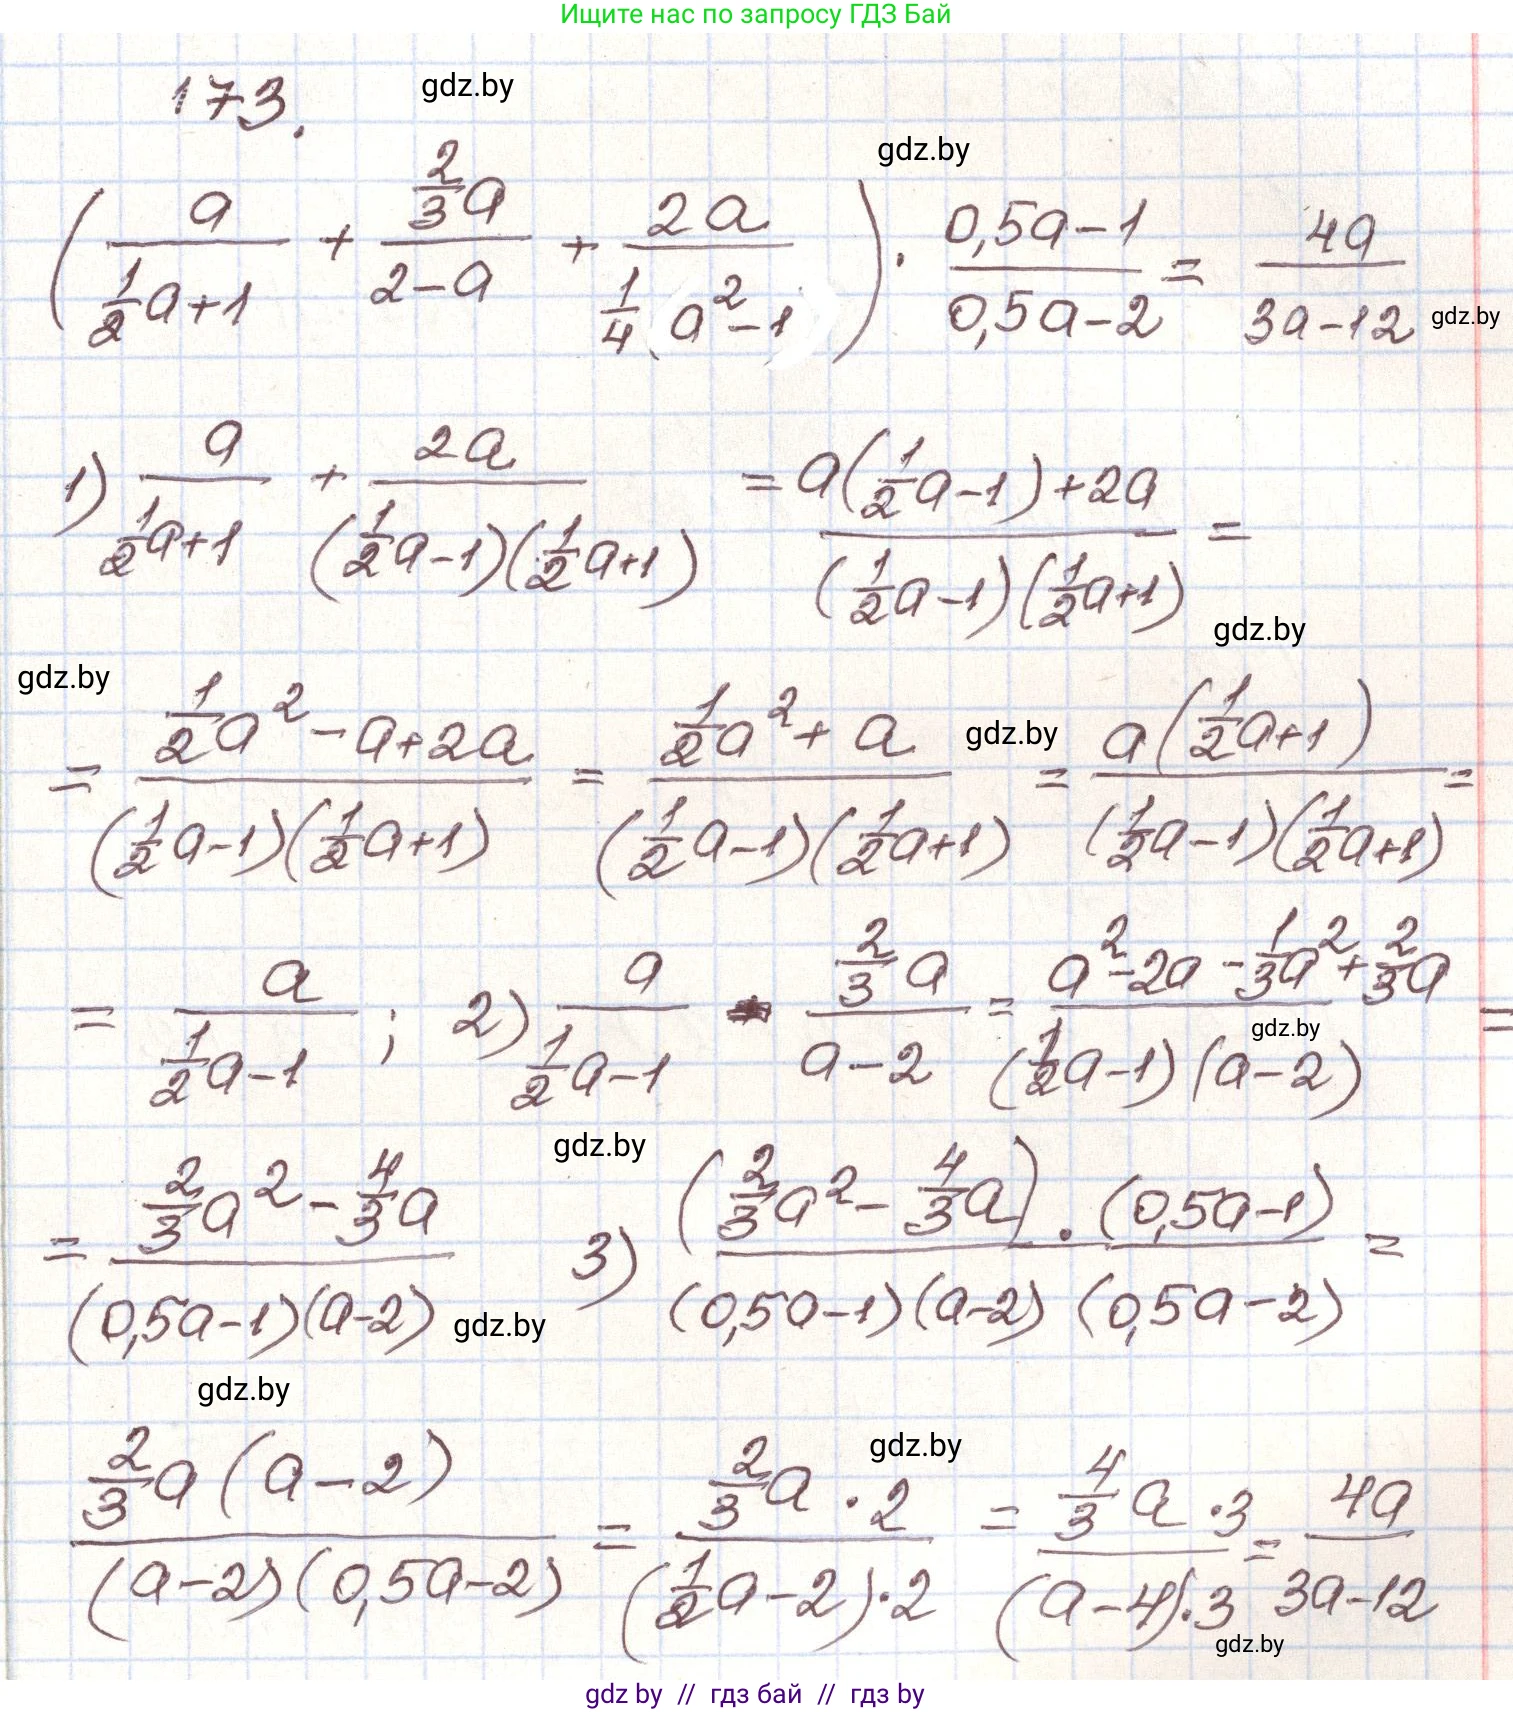 Ищите нас по запросу ГДЗ Бай
173. gdz.by
gdz.by
(a/(1/2a+1) + (2/3a)/(2-a) + 2a/(1/4a²-1)) · (0,5a-1)/(0,5a-2) = 4a/(3a-12) gdz.by
1) a/(1/2a+1) + 2a/((1/2a-1)(1/2a+1)) = (a(1/2a-1)+2a)/((1/2a-1)(1/2a+1)) =
gdz.by
gdz.by
= (1/2a²-a+2a)/((1/2a-1)(1/2a+1)) = (1/2a²+a)/((1/2a-1)(1/2a+1)) gdz.by = a(1/2a+1)/((1/2a-1)(1/2a+1)) =
= a/(1/2a-1); 2) a/(1/2a-1) - (2/3a)/(a-2) = (a²-2a-1/3a²+2/3a)/((1/2a-1)(a-2)) =
gdz.by
gdz.by
= (2/3a²-4/3a)/((0,5a-1)(a-2)) 3) ((2/3a²-4/3a)·(0,5a-1))/((0,5a-1)(a-2)(0,5a-2)) =
gdz.by
gdz.by
gdz.by
2/3a(a-2)/((a-2)(0,5a-2)) = (2/3a·2)/((1/2a-2)·2) = (4/3a·3)/((a-4)·3) = 4a/(3a-12)
gdz.by
gdz by // гдз бай // гдз by